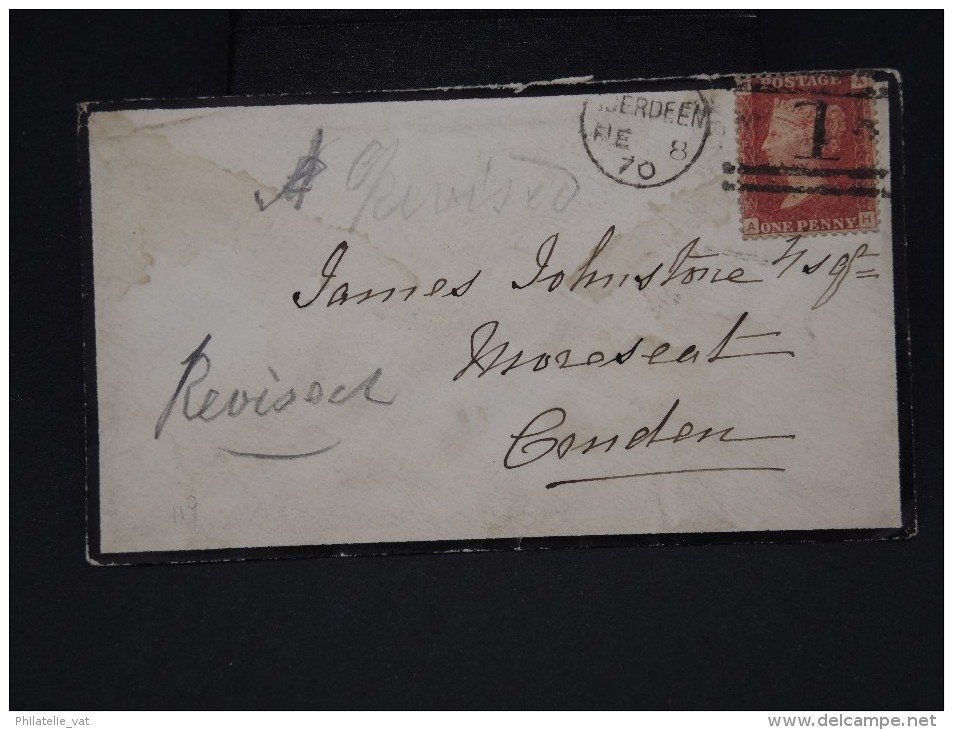 ABERDEEN
FE 8
70
POSTAGE
1
A H
ONE PENNY
Revised
James Johnstone Esqr
Moreseat
Cruden
Revised
119
Philatelie_vat
www.delcampe.net